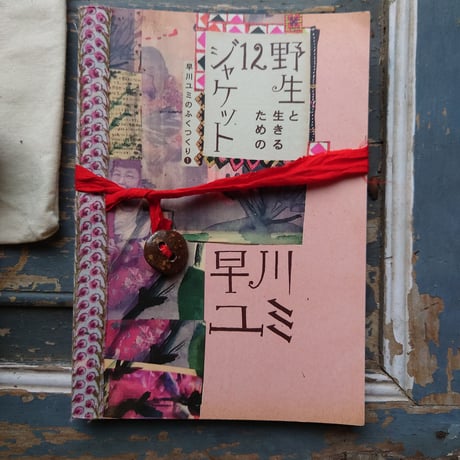 野生と
生きる
ための
12
ジャケット
早川ユミのふくつくり1
早川
ユミ